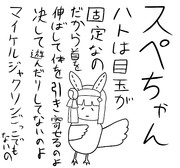 スペちゃん
ハトは目玉が
固定なの
だから首を
伸ばして体を引き寄せるのよ
決して遊んだりしてないのよ
マイケルジャクソンごっこでも
ないの